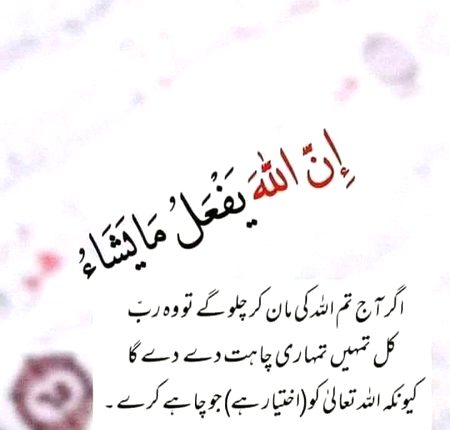 إِنَّ اللّٰهَ يَفْعَلُ مَا يَشَاءُ
اگر آج تم اللہ کی مان کر چلو گے تو وہ ربّ
کل تمہیں تمہاری چاہت دے دے گا
کیونکہ اللہ تعالیٰ کو (اختیار ہے) جو چاہے کرے ۔